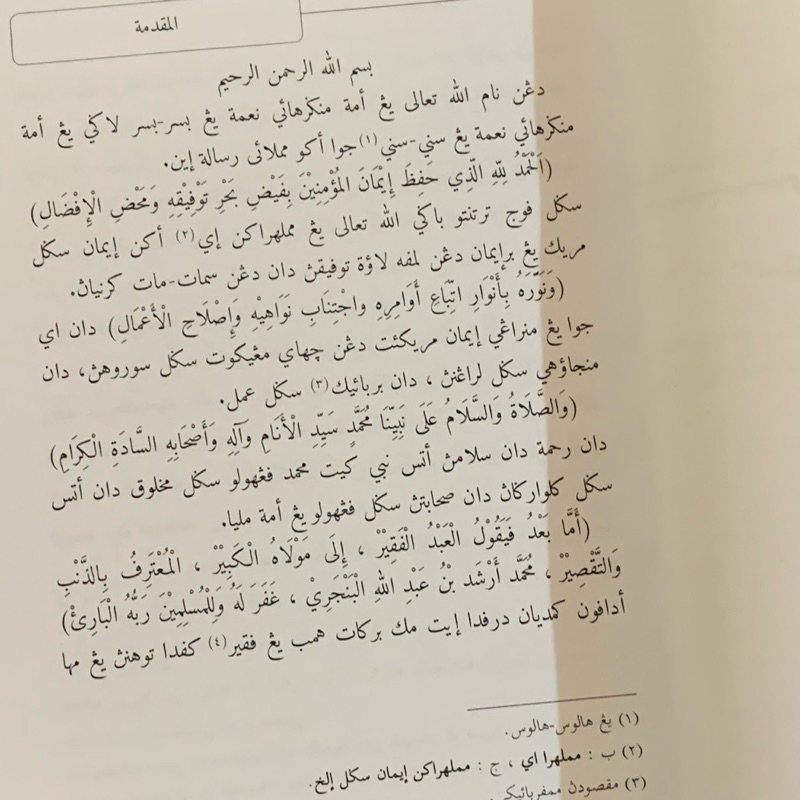 المقدمة
بسم الله الرحمن الرحيم
دڠن نام الله تعالى يڠ أمة منكرهائي نعمة يڠ بسر-بسر لاكي يڠ أمة
منكرهائي نعمة يڠ سني-سني(١)جوا أكو مملائى رسالة إين.
(اَلْحَمْدُ لِلّٰهِ الَّذِي حَفِظَ إِيْمَانَ المُؤْمِنِيْنَ بِفَيْضِ بَحْرِ تَوْفِيْقِهِ وَمَحْضِ الْإِفْضَالِ)
سكل فوج ترتنتو باكي الله تعالى يڠ مملهراكن إي(٢) أكن إيمان سكل
مريك يڠ برإيمان دڠن لمفه لاؤة توفيقڽ دان دڠن سمات-مات كرنياڽ.
(وَنَوَّرَهُ بِأَنْوَارِ اتِّبَاعِ أَوَامِرِهِ واجْتِنَابِ نَوَاهِيْهِ وَإِصْلَاحِ الْأَعْمَالِ) دان اي
جوا يڠ منراڠي إيمان مريكئت دڠن چهاي مڠيكوت سكل سوروهڽ، دان
منجاؤهي سكل لراڠنڽ ، دان بربائيك(٣) سكل عمل.
(وَالصَّلَاةُ وَالسَّلَامُ عَلَى نَبِيِّنَا مُحَمَّدٍ سَيِّدِ الْأَنَامِ وَآلِهِ وَأَصْحَابِهِ السَّادَةِ الْكِرَامِ)
دان رحمة دان سلامڽ أتس نبي كيت محمد فڠهولو سكل مخلوق دان أتس
سكل كلواركاڽ دان صحابتڽ سكل فڠهولو يڠ أمة مليا.
(أَمَّا بَعْدُ فَيَقُوْلُ الْعَبْدُ الْفَقِيْرْ ، إِلَى مَوْلَاهُ الْكَبِيْرْ ، الْمُعْتَرِفُ بِالذَّنْبِ
وَالتَّقْصِيْرْ ، مُحَمَّد أَرْشَد بْنُ عَبْدِ اللهِ الْبَنْجَرِيْ ، غَفَرَ لَهُ وَلِلْمُسْلِمِيْنَ رَبُّهُ الْبَارِئْ)
أدافون كمديان درفدا إيت مك بركات همب يڠ فقير(٤) كفدا توهنڽ يڠ مها
(١) يڠ هالوس-هالوس.
(٢) ب : مملهرا اي ، ج : مملهراكن إيمان سكل إلخ.
(٣) مقصودڽ ممفربائيكي